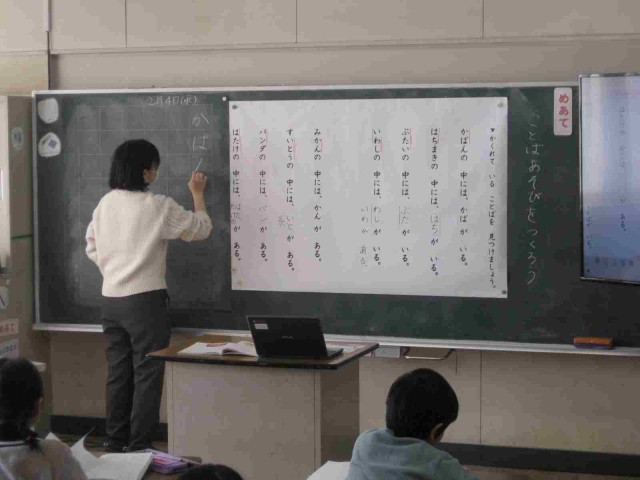 めあて
ことばあそびをつくろう
▼かくれて いる ことばを 見つけましょう。
かばんの 中には、かばが いる。
はちまきの 中には、はちが いる。
ぶたいの 中には、ぶたが いる。
いわしの 中には、わしが いる。
みかんの 中には、かんが ある。
すいとうの 中には、いとが ある。
パンダの 中には、パンが ある。
はたけの 中には、 が ある。
2月4日(水)
かば